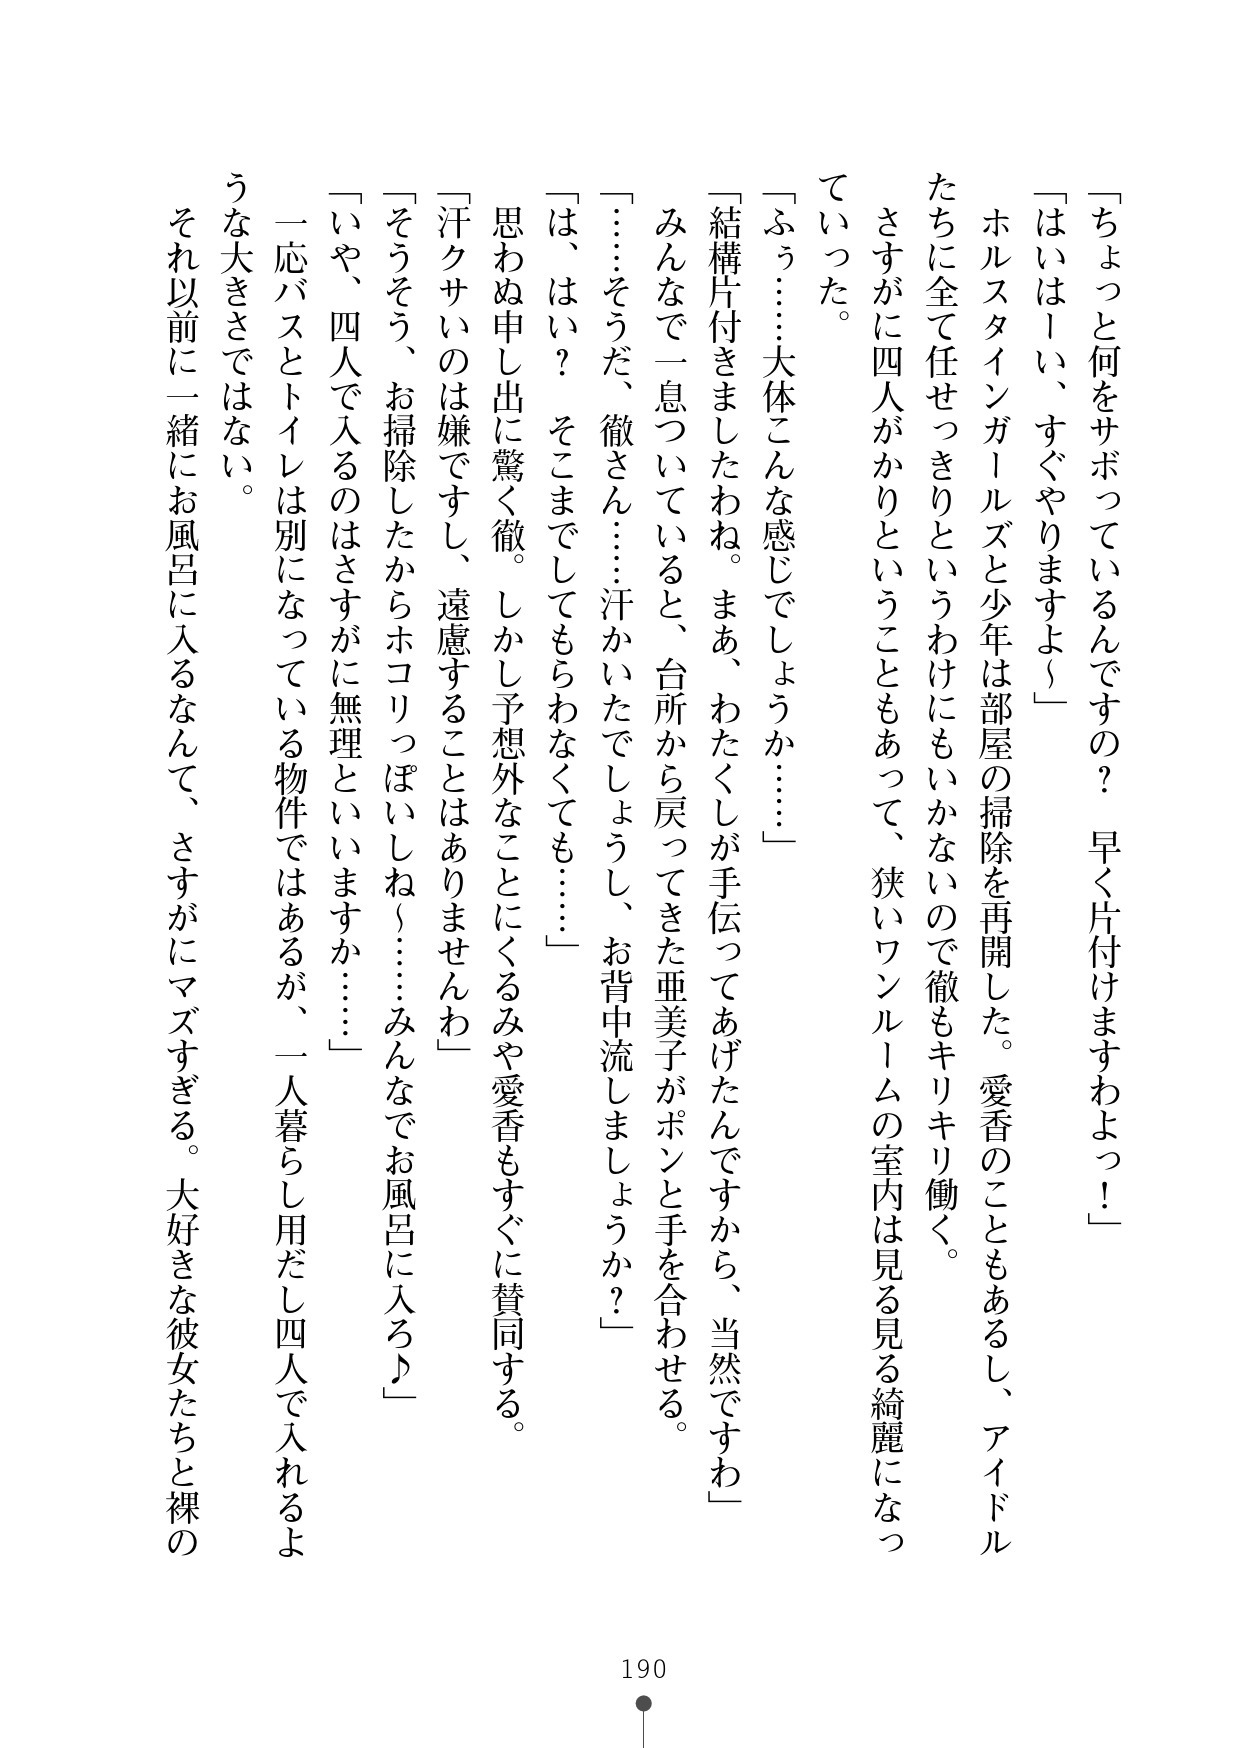 「ちょっと何をサボっているんですの？　早く片付けますわよっ！」
「はいはーい、すぐやりますよ～」
　ホルスタインガールズと少年は部屋の掃除を再開した。愛香のこともあるし、アイドル
たちに全て任せっきりというわけにもいかないので徹もキリキリ働く。
　さすがに四人がかりということもあって、狭いワンルームの室内は見る見る綺麗になっ
ていった。
「ふぅ……大体こんな感じでしょうか……」
「結構片付きましたわね。まあ、わたくしが手伝ってあげたんですから、当然ですわ」
　みんなで一息ついていると、台所から戻ってきた亜美子がポンと手を合わせる。
「……そうだ、徹さん……汗かいたでしょうし、お背中流しましょうか？」
「は、はい？　そこまでしてもらわなくても……」
　思わぬ申し出に驚く徹。しかし予想外なことにくるみや愛香もすぐに賛同する。
「汗クサいのは嫌ですし、遠慮することはありませんわ」
「そうそう、お掃除したからホコリっぽいしね～……みんなでお風呂に入ろ♪」
「いや、四人で入るのはさすがに無理といいますか……」
　一応バスとトイレは別になっている物件ではあるが、一人暮らし用だし四人で入れるよ
うな大きさではない。
　それ以前に一緒にお風呂に入るなんて、さすがにマズすぎる。大好きな彼女たちと裸の
190